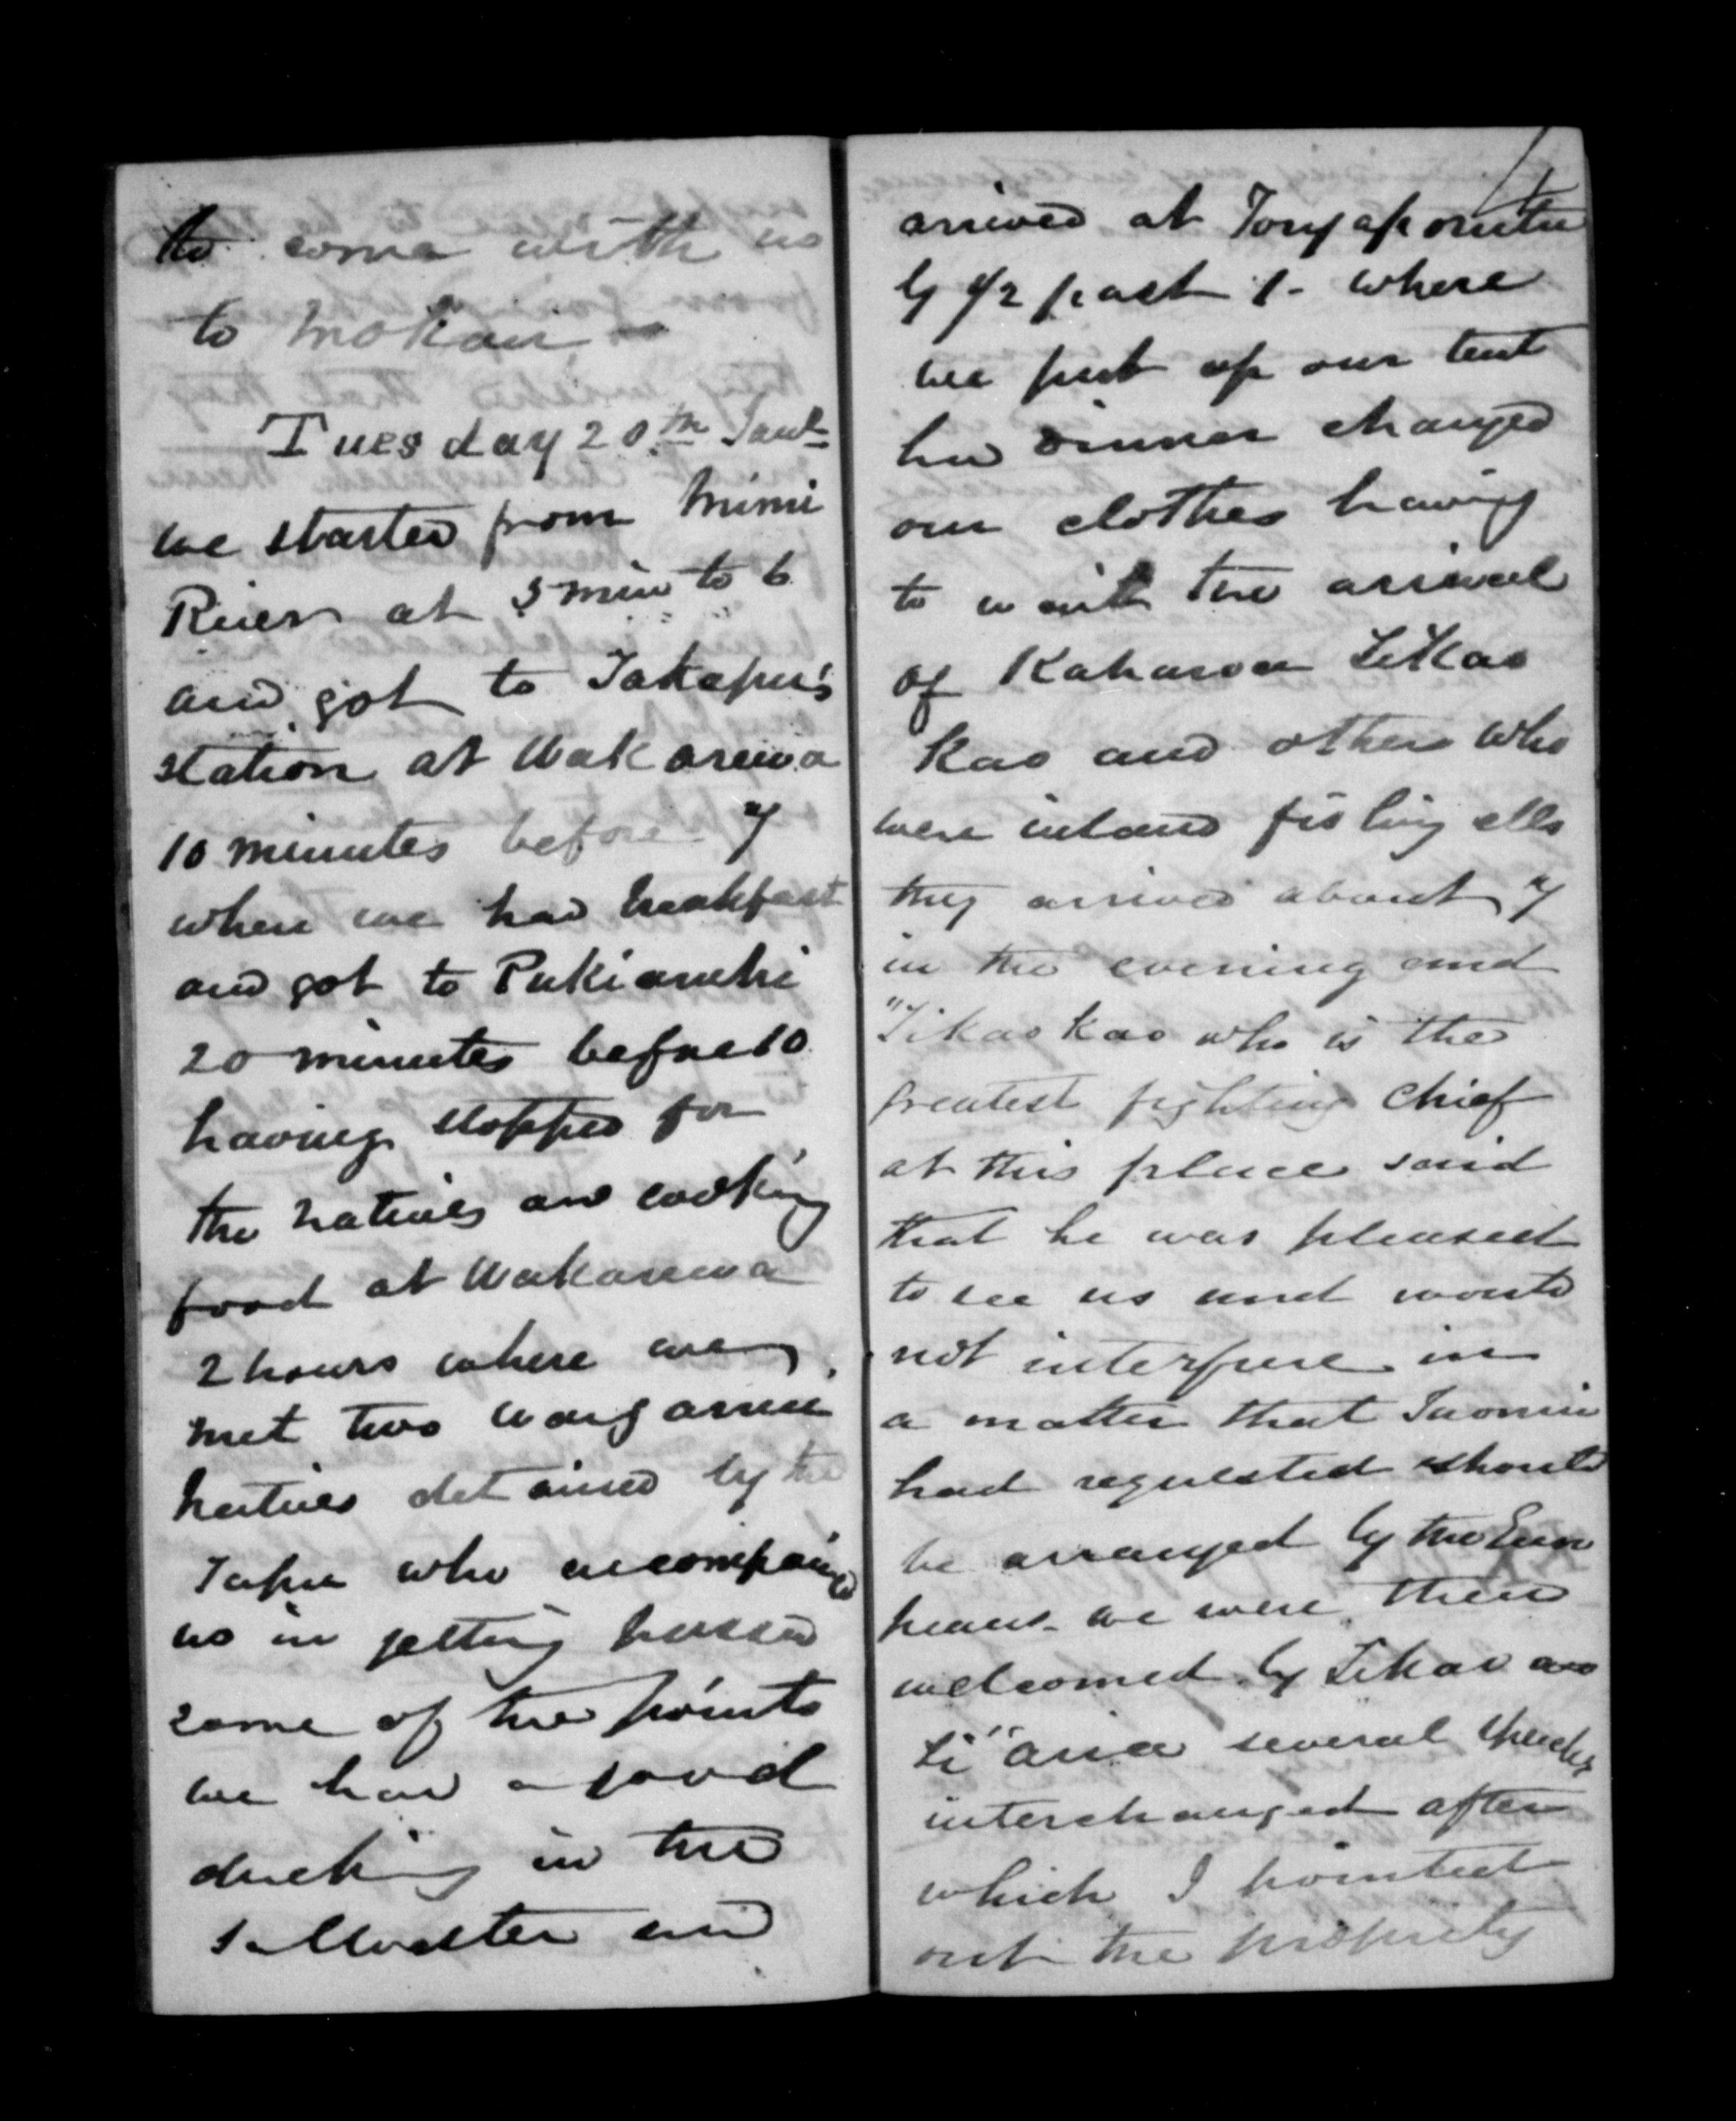 to come with us
to Mokau
Tuesday 20th Jany
we started from Mimi
River at 5 min to 6
and got to Takapu's
station at Wakarewa
10 minutes before 7
where we had breakfast
and got to Pukiaruhi
20 minutes before 10
having stopped for
the natives and cooking
food at Wakarewa
2 hours where we
met two
natives detained by the
Tapu who accompanied
us in getting passed
some of the points
we had a good
ducking in the
saltwater and
arrived at Tongaporutu
by 1/2 past 1 - where
we put up our tent
had dinner changed
our clothes having
to wait the arrival
of Kaharoa Tikao
Kao and others who
were inland fishing ells
they arrived about 7
in the evening and
"Tikaokao who is the
greatest fighting chief
at this place said
that he was pleased
to see us and would
not interfere in
a matter that
had requested should
be arranged by the Euro
peans - we were then
welcomed by Tikao and
several speeches
interchanged after
which I pointed
out the propriety